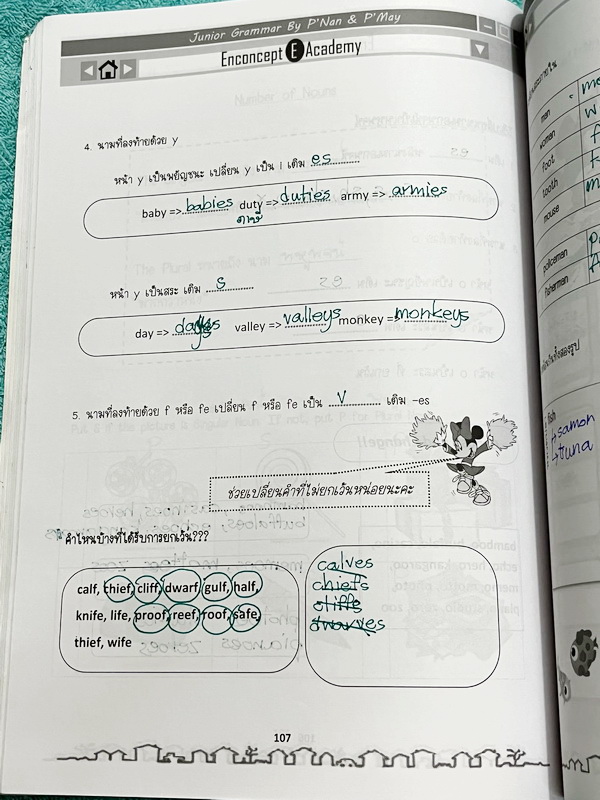 Junior Grammar By P'Nan & P'May
Enconcept E Academy
4. นามที่ลงท้ายด้วย y
หน้า y เป็นพยัญชนะ เปลี่ยน y เป็น i เติม es
baby => babies duty => duties army => armies
ภาษี
หน้า y เป็นสระ เติม s
day => days valley => valleys monkey => monkeys
5. นามที่ลงท้ายด้วย f หรือ fe เปลี่ยน f หรือ fe เป็น v เติม -es
ช่วยเปลี่ยนคำที่ไม่ยกเว้นหน่อยนะคะ
คำไหนบ้างที่ได้รับการยกเว้น???
calf, thief, cliff, dwarf, gulf, half,
knife, life, proof, reef, roof, safe,
thief, wife
calves
chiefs
cliffs
dwarves
107
man
woman
foot
tooth
mouse
policeman
fisherman
fish
samon
tuna